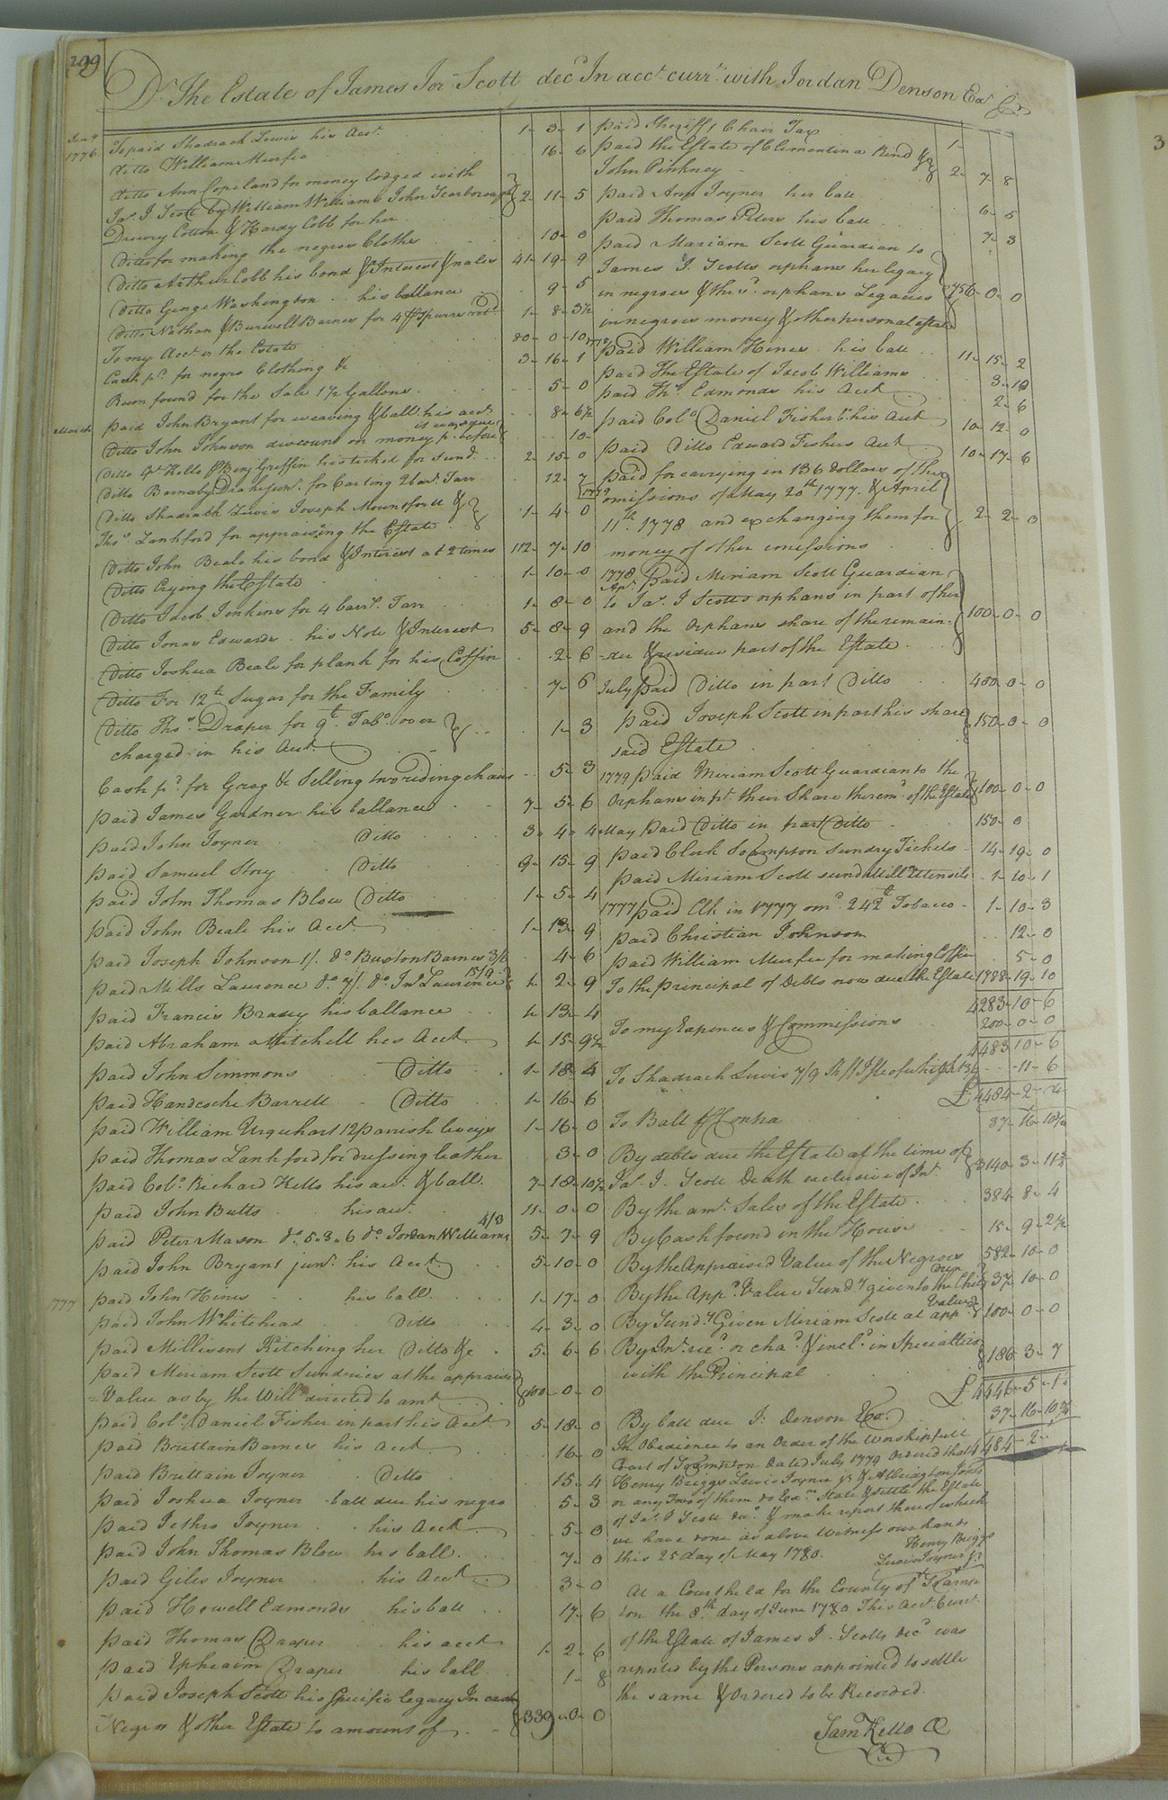 299
Dr. The Estate of James Jor. Scott decd In acct. currt. with Jordan Denson Exr. Cr.
1776 To paid Shadrach Lewis his Acct. 1 - 3 - 1
Ditto William Murfee 16 - 6
Ditto Ann Copeland for money lodged with
Jas. J. Scott by William Williams John Scarborough
Drewry Cotton & Hardy Cobb for her 2 - 11 - 5
Ditto for making the negroes Cloths 10 - 0
Ditto Arthur Cobb his bond & Interest & nales 41 - 19 - 9
Ditto George Washington his ballance 9 - 5
Ditto Nathan & Burwell Barnes for 4 1 - 8 - 3½
To my Acct. vs the Estate 80 - 0 - 10
Cash pd. for negro Clothing &c 3 - 16 - 1
Rum found for the Sale 1½ Gallons 5 - 0
March paid John Bryant for weaving & ball. his acct. 8 - 6½
Ditto John Johnson discount on money p. before 10 -
Ditto Kello & Benj Griffin his ticket for Sund. 2 - 15 - 0
Ditto Barnaby Drake junr. for Carting 2 bard. Tarr 12 - 7
Ditto Shadrach Lewis Joseph Mountfort &
Thos. Lankford for appraising the Estate 1 - 4 - 0
Ditto John Beale his bond & Interest at 2 times 112 - 7 - 10
Ditto Crying the Estate 1 - 10 - 0
Ditto Jacob Jenkins for 4 barrs. Tarr 1 - 8 - 0
Ditto Jonas Edwards his Note & Interest 5 - 8 - 9
Ditto Joshua Beale for plank for his Coffin 2 - 6
Ditto For 12 lb Sugar for the Family 7 - 6
Ditto Thos. Draper for 9 lb Tabo. over
charged in his Acct. 1 - 3
Cash pd. for Grog &c Selling two riding chairs 5 - 3
paid James Gardner his ballance 7 - 5 - 6
paid John Joyner Ditto 3 - 4 - 4
paid Samuel Story Ditto 9 - 15 - 9
paid John Thomas Blow Ditto 1 - 5 - 4
paid John Beale his Acct. 1 - 13 - 9
paid Joseph Johnson 1/. do. Buxton Barnes 3/6 4 - 6
paid Mills Laurence do. 7/. do. Jno. Laurence 15/9 1 - 2 - 9
paid Francis Brasey his ballance 1 - 13 - 4
paid Abraham Mitchell his Acct. 1 - 15 - 9½
paid John Simmons Ditto 1 - 18 - 4
paid Handcocke Barrett Ditto 1 - 16 - 6
paid William Urquhart 12 parrish leveys 1 - 16 - 0
paid Thomas Lankford for dressing leather 3 - 0
paid Colo. Richard Kello his acct. & ball. 7 - 18 - 10½
paid John Butts his acct. 11 - 0 - 0
paid Peter Mason do. 5.3.6 do. Jordan Williams 4/3 5 - 7 - 9
paid John Bryant junr. his Acct. 5 - 10 - 0
1777 paid John Hines his ball. 1 - 17 - 0
paid John Whitehead Ditto 4 - 3 - 0
paid Millisent Kitching her Ditto &c 5 - 6 - 6
paid Miriam Scott Sundries at the appraised
Value as by the Will directed to amt. 100 - 0 - 0
paid Colo. Daniel Fisher in part his Acct. 5 - 18 - 0
paid Brittain Barnes his Acct. 16 - 0
paid Brittain Joyner Ditto 15 - 4
paid Joshua Joyner ball due his negro 5 - 3
paid Jethro Joyner his Acct. 5 - 0
paid John Thomas Blow his ball. 7 - 0
paid Giles Joyner his Acct. 3 - 0
paid Howell Edmonds his ball 17 - 6
paid Thomas Draper his acct 1 - 2 - 6
paid Ephraim Draper his ball 1 - 8
paid Joseph Scott his Specific legacy In cash
Negros & other Estate to amount of 339 - 0 - 0
paid Sheriff 1 Chair Tax 1 -
paid the Estate of Clementina Rind &
John Pinkney 2 - 7 - 8
paid Ann Joyner her ball 6 - 5
paid Thomas Peters his ball 7 - 3
paid Mariam Scott Guardian to
James J. Scotts orphans her legacy
in negroes & the sd. orphans Legacies
in negroes money & other personal estate 756 - 0 - 0
paid William Hines his ball 11 - 15 - 2
paid The Estate of Jacob Williams 3 - 10
paid Ths. Edmonds his Acct 2 - 6
paid Colo. Daniel Fisher his Acct 10 - 12 - 0
paid Ditto Edward Fishers Acct 10 - 17 - 6
paid for carrying in 136 dollars of the
omissions of May 20th 1777. & April
11th 1778 and exchanging them for
money of other omissions 2 - 2 - 0
1778 Apr. paid Miriam Scott Guardian
to Jas. J Scotts orphans in part of her
and the Orphans share of the remain-
der & residue part of the Estate 100 - 0 - 0
July paid Ditto in part Ditto 400 - 0 - 0
paid Joseph Scott in part his share
said Estate 150 - 0 - 0
1779 paid Miriam Scott Guardian to the
Orphans in pt. their Share the remr. of the Estate 100 - 0 - 0
May paid Ditto in part Ditto 150 - 0
paid Clerk So.ampton Sundry Tickets 14 - 19 - 0
paid Miriam Scott sund. Mill Utensils 1 - 10 - 1
1777 paid Clk in 1777 242 lb Tobacco 1 - 10 - 3
paid Christian Johnson 12 - 0
paid William Murfee for making Coffin 5 - 0
To the principal of Debts now due the Estate 1788 - 19 - 10
4283 - 10 - 6
To my Expences & Commissions 200 - 0 - 0
4483 - 10 - 6
To Shadrach Lewis 7/9 11 - 6
£4484 - 2 - 
To Ball. & Contra 37 - 16 - 10½
By debts due the Estate at the time of
Jas. J. Scott Death exclusive of Int. 3140 - 3 - 11½
By the amt. Sales of the Estate 384 - 8 - 4
By Cash found in the House 15 - 9 - 2½
By the Appraised Value of the Negroes 582 - 10 - 0
By the Appd. Value Sundy given to the Chin. 37 - 10 - 0
By Sundy Given Miriam Scott at appd. Value 100 - 0 - 0
By Int. recd. or chad. & incld. in Specialties
with the Principal 186 - 3 - 7
£4446 - 5 - 1½
By ball due J. Denson Exr. 37 - 16 - 10½
4484 - 2 -
In Obedience to an Order of the Worshipfull
Court of So.ampton Dated July 1779 Ordered that
Henry Briggs Lewis Joyner jr & Albrighton Jones
or any Two of them do Exam. State & settle the Estate
of Jas. J Scott decd. & make report thereof which
we have done as above Witness our hands
this 25 day of May 1780. Henry Briggs
Lewis Joyner jr
At a Court held for the County of So.amp-
ton the 8th day of June 1780 This Acct. Curr.
of the Estate of James J. Scotts decd was
reported by the Persons appointed to settle
the same & Ordered to be Recorded.
Sam Kello CC